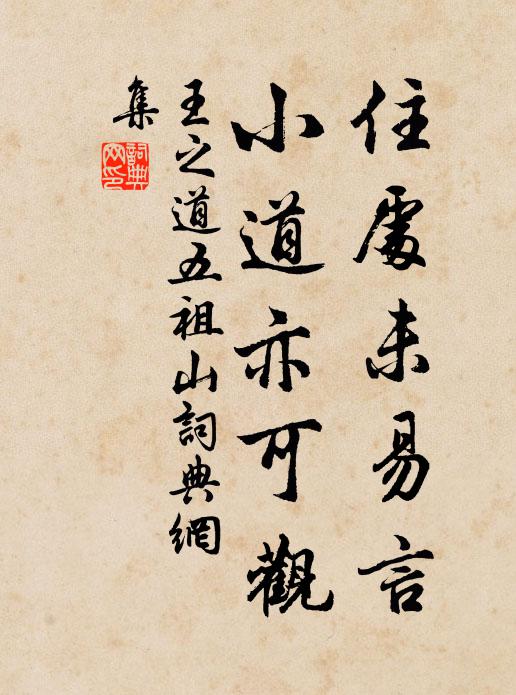 住處未易言
小道亦可觀
王之道五祖山詞典網
集
詞典網印